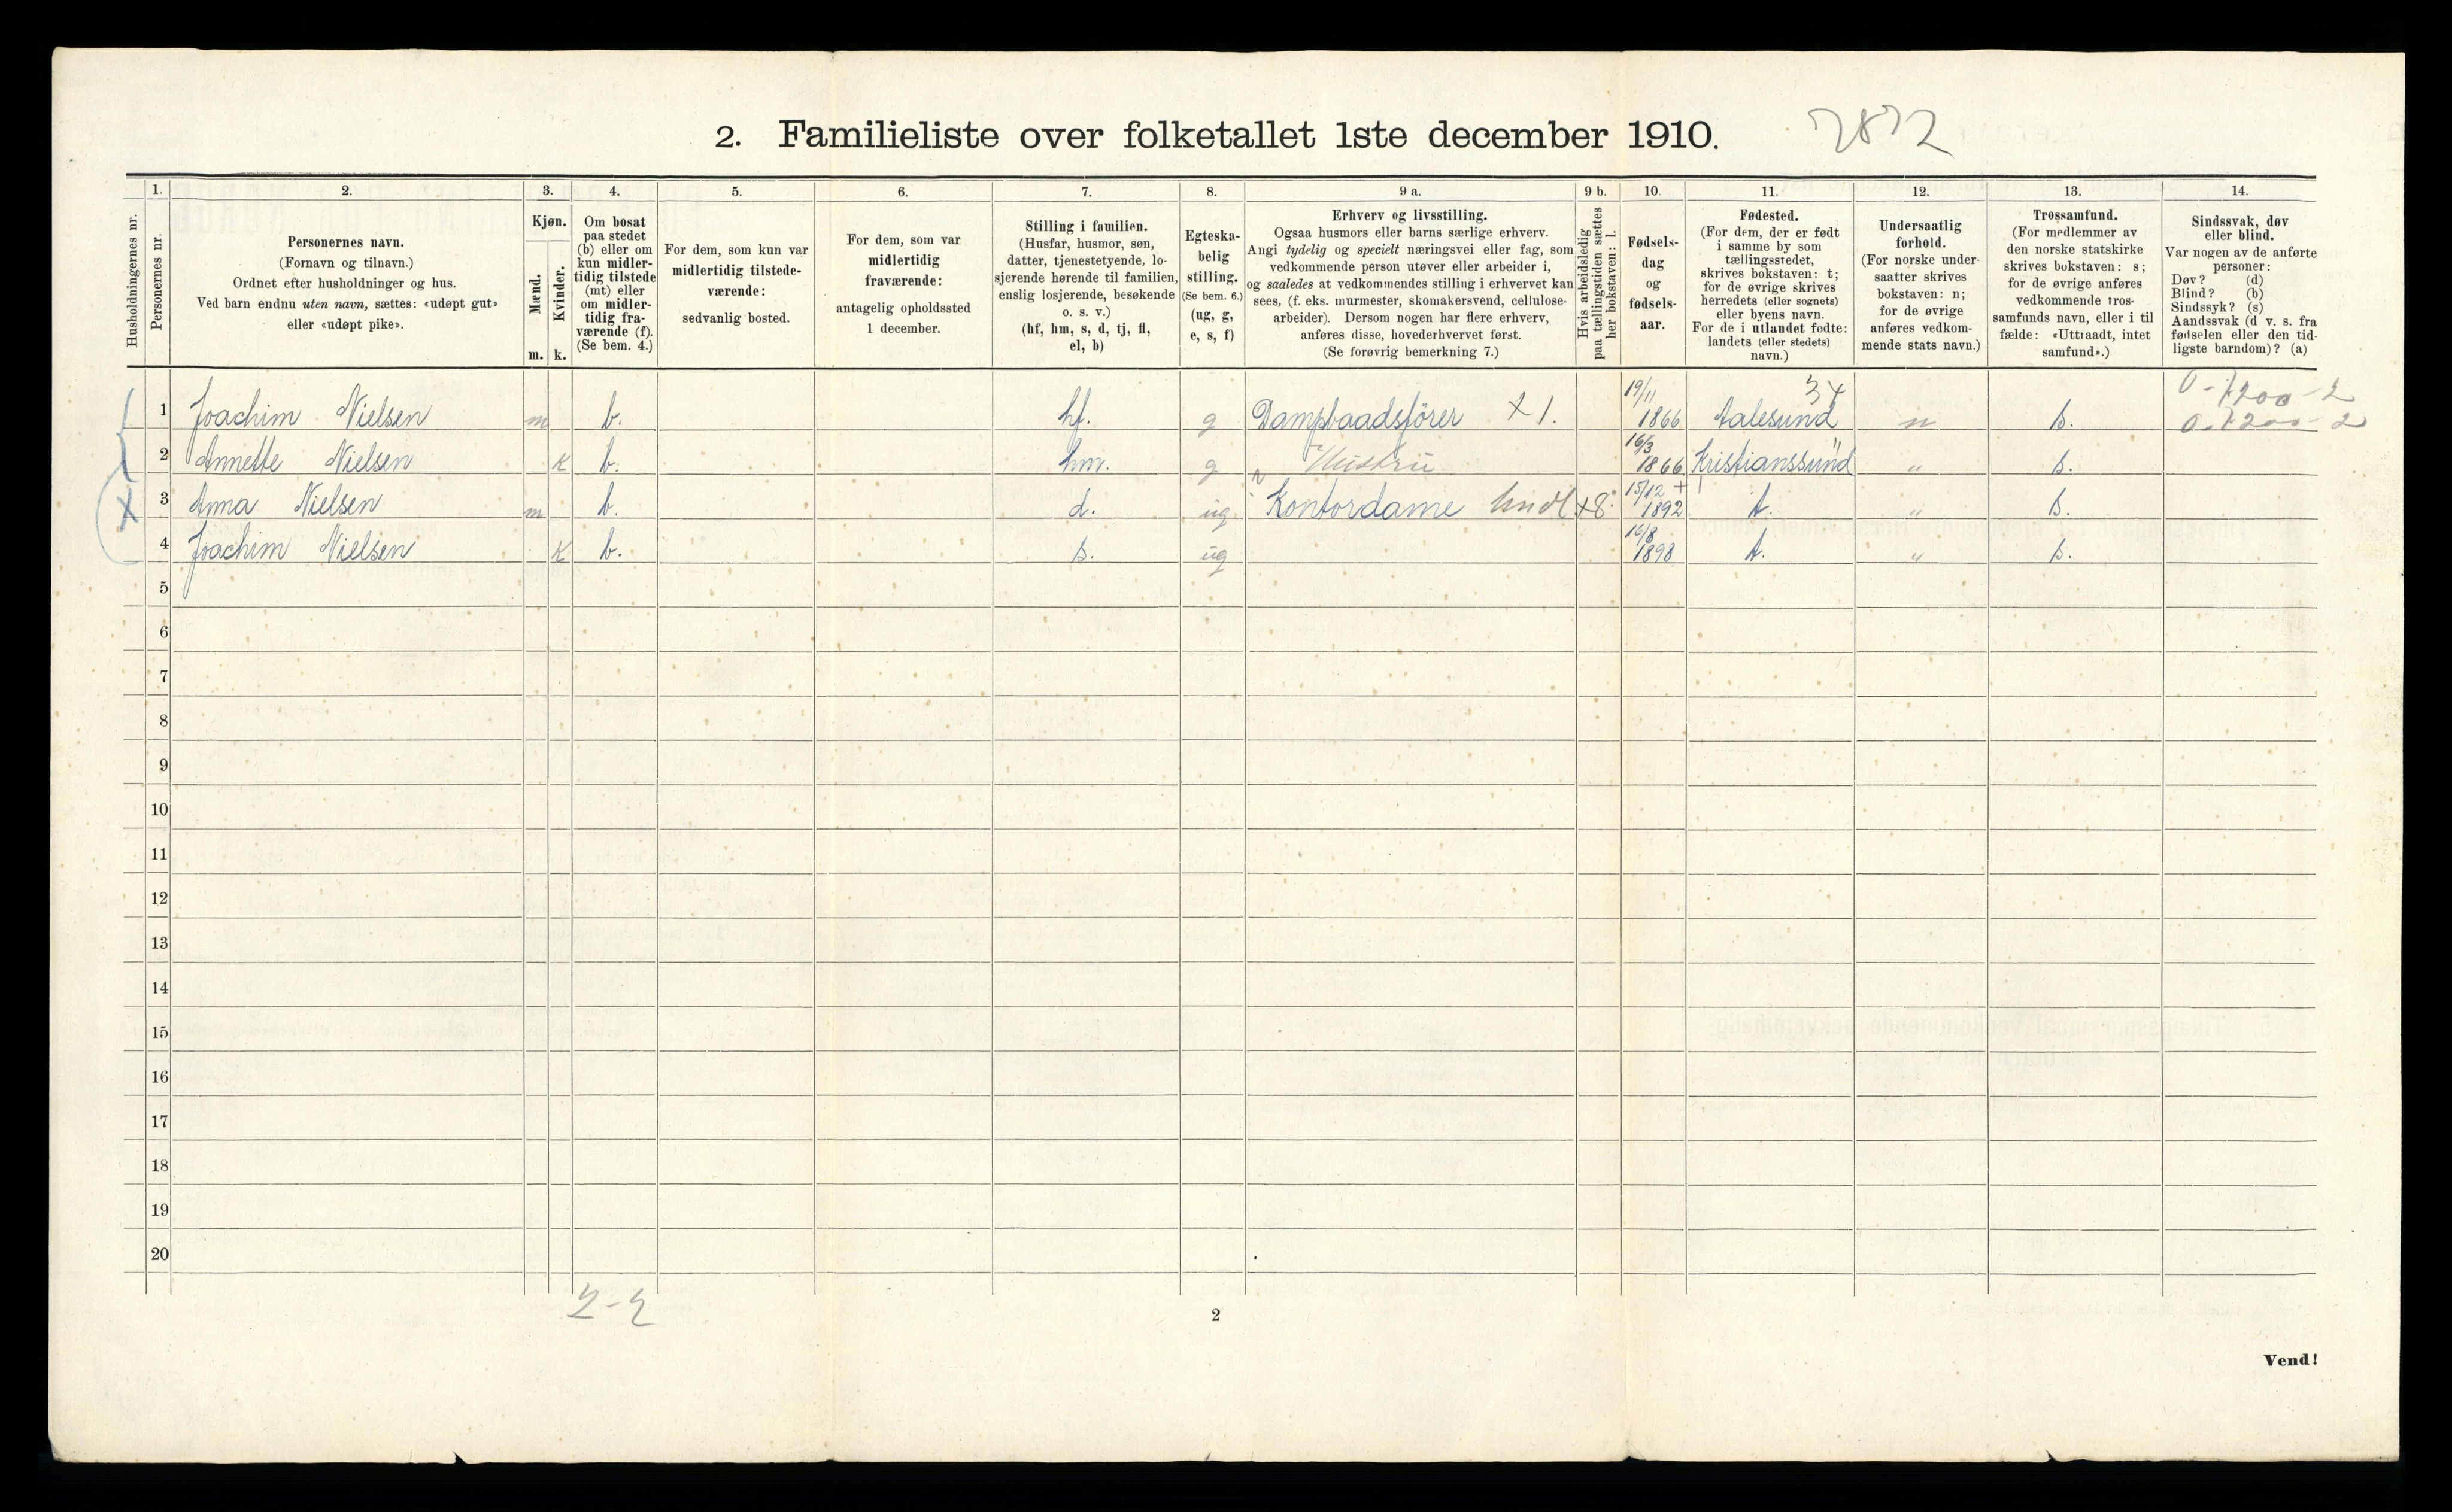 2. Familieliste over folketallet 1ste december 1910.
2812
Husholdningernes nr.
1.
Personernes nr.
2.
Personernes navn.
(Fornavn og tilnavn.)
Ordnet efter husholdninger og hus.
Ved barn endnu uten navn, sættes: «udøpt gut»
eller «udøpt pike».
3.
Kjøn.
Mænd.
Kvinder.
m. k.
4.
Om bosat
paa stedet
(b) eller om
kun midler-
tidig tilstede
(mt) eller
om midler-
tidig fra-
værende (f).
(Se bem. 4.)
5.
For dem, som kun var
midlertidig tilstede-
værende:
sedvanlig bosted.
6.
For dem, som var
midlertidig
fraværende:
antagelig opholdssted
1 december.
7.
Stilling i familien.
(Husfar, husmor, søn,
datter, tjenestetyende, lo-
sjerende hørende til familien,
enslig losjerende, besøkende
o. s. v.)
(hf, hm, s, d, tj, fl,
el, b)
8.
Egteska-
belig
stilling.
(Se bem. 6.)
(ug, g,
e, s, f)
9 a.
Erhverv og livsstilling.
Ogsaa husmors eller barns særlige erhverv.
Angi tydelig og specielt næringsvei eller fag, som
vedkommende person utøver eller arbeider i,
og saaledes at vedkommendes stilling i erhvervet kan
sees, (f. eks. murmester, skomakersvend, cellulose-
arbeider). Dersom nogen har flere erhverv,
anføres disse, hovederhvervet først.
(Se forøvrig bemerkning 7.)
9 b.
Hvis arbeidsledig
paa tællingstiden sættes
her bokstaven: l.
10.
Fødsels-
dag
og
fødsels-
aar.
11.
Fødested.
(For dem, der er født
i samme by som
tællingsstedet,
skrives bokstaven: t;
for de øvrige skrives
herredets (eller sognets)
eller byens navn.
For de i utlandet fødte:
landets (eller stedets)
navn.)
12.
Undersaatlig
forhold.
(For norske under-
saatter skrives
bokstaven: n;
for de øvrige
anføres vedkom-
mende stats navn.)
13.
Trossamfund.
(For medlemmer av
den norske statskirke
skrives bokstaven: s;
for de øvrige anføres
vedkommende tros-
samfunds navn, eller i til
fælde: «Uttraadt, intet
samfund».)
14.
Sindssvak, døv
eller blind.
Var nogen av de anførte
personer:
Døv? (d)
Blind? (b)
Sindssyk? (s)
Aandssvak (d v. s. fra
fødselen eller den tid-
ligste barndom)? (a)
34
0-7200-2
1 Joachim Nielsen m b. hf. g Dampbaadsfører X 1. 19/11 1866 Aalesund n s. 0-7200-2
2 Annette Nielsen k b. hm. g Hustru 16/3 1866 Kristianssund " s.
3 Anna Nielsen m b. d. ug Kontordame Hndl +8 15/12 1892 t. " s.
4 Joachim Nielsen k b. s. ug 16/8 1898 t. " s.
5
6
7
8
9
10
11
12
13
14
15
16
17
18
19
20
2-2
2
Vend!